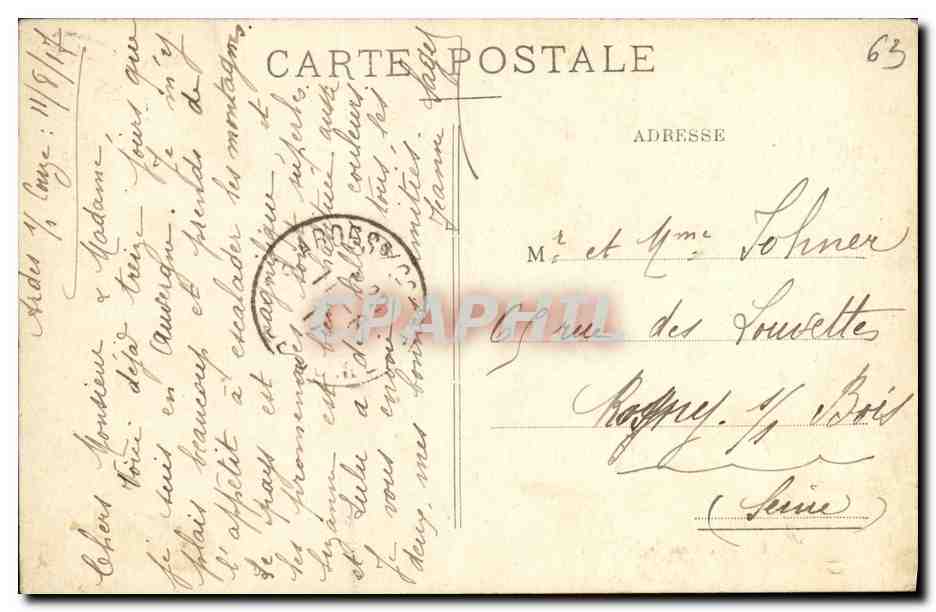 CARTE POSTALE
63
ADRESSE
Mr et Mme Johner
69 rue des Louvettes
Rosny s/s Bois
(Seine)
Ardes s/s Couze : 11/8/17
Chers Monsieur & Madame
Voici déjà treize jours que
je suis en Auvergne. Je m'y
plais beaucoup et prends de
l'appétit à escalader les montagnes
Le pays est magnifique et
les promenades sont superbes
est bien aussi
et Lulu a de belles couleurs
Je vous envoie à tous les
deux, mes bonnes amitiés.
Jeanne
ARDES-S-COUZE
CPAPHIL